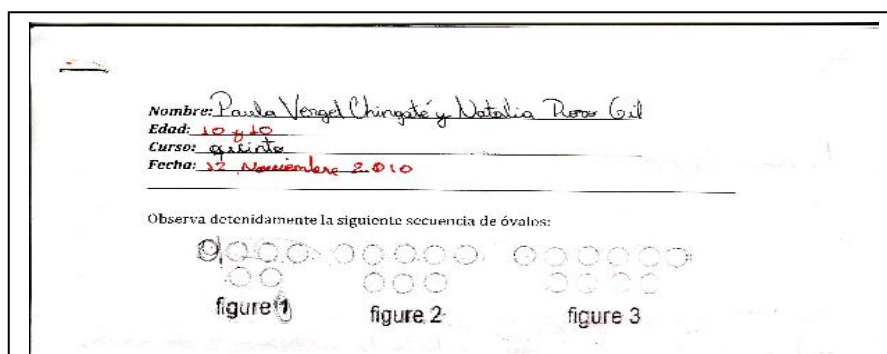 Nombre: Paula Vergel Chingaté y Natalia Gil
Edad: 10 y 10
Curso: quinto
Fecha: 12 Noviembre 2.010
Observa detenidamente la siguiente secuencia de óvalos:
figure 1 figure 2 figure 3